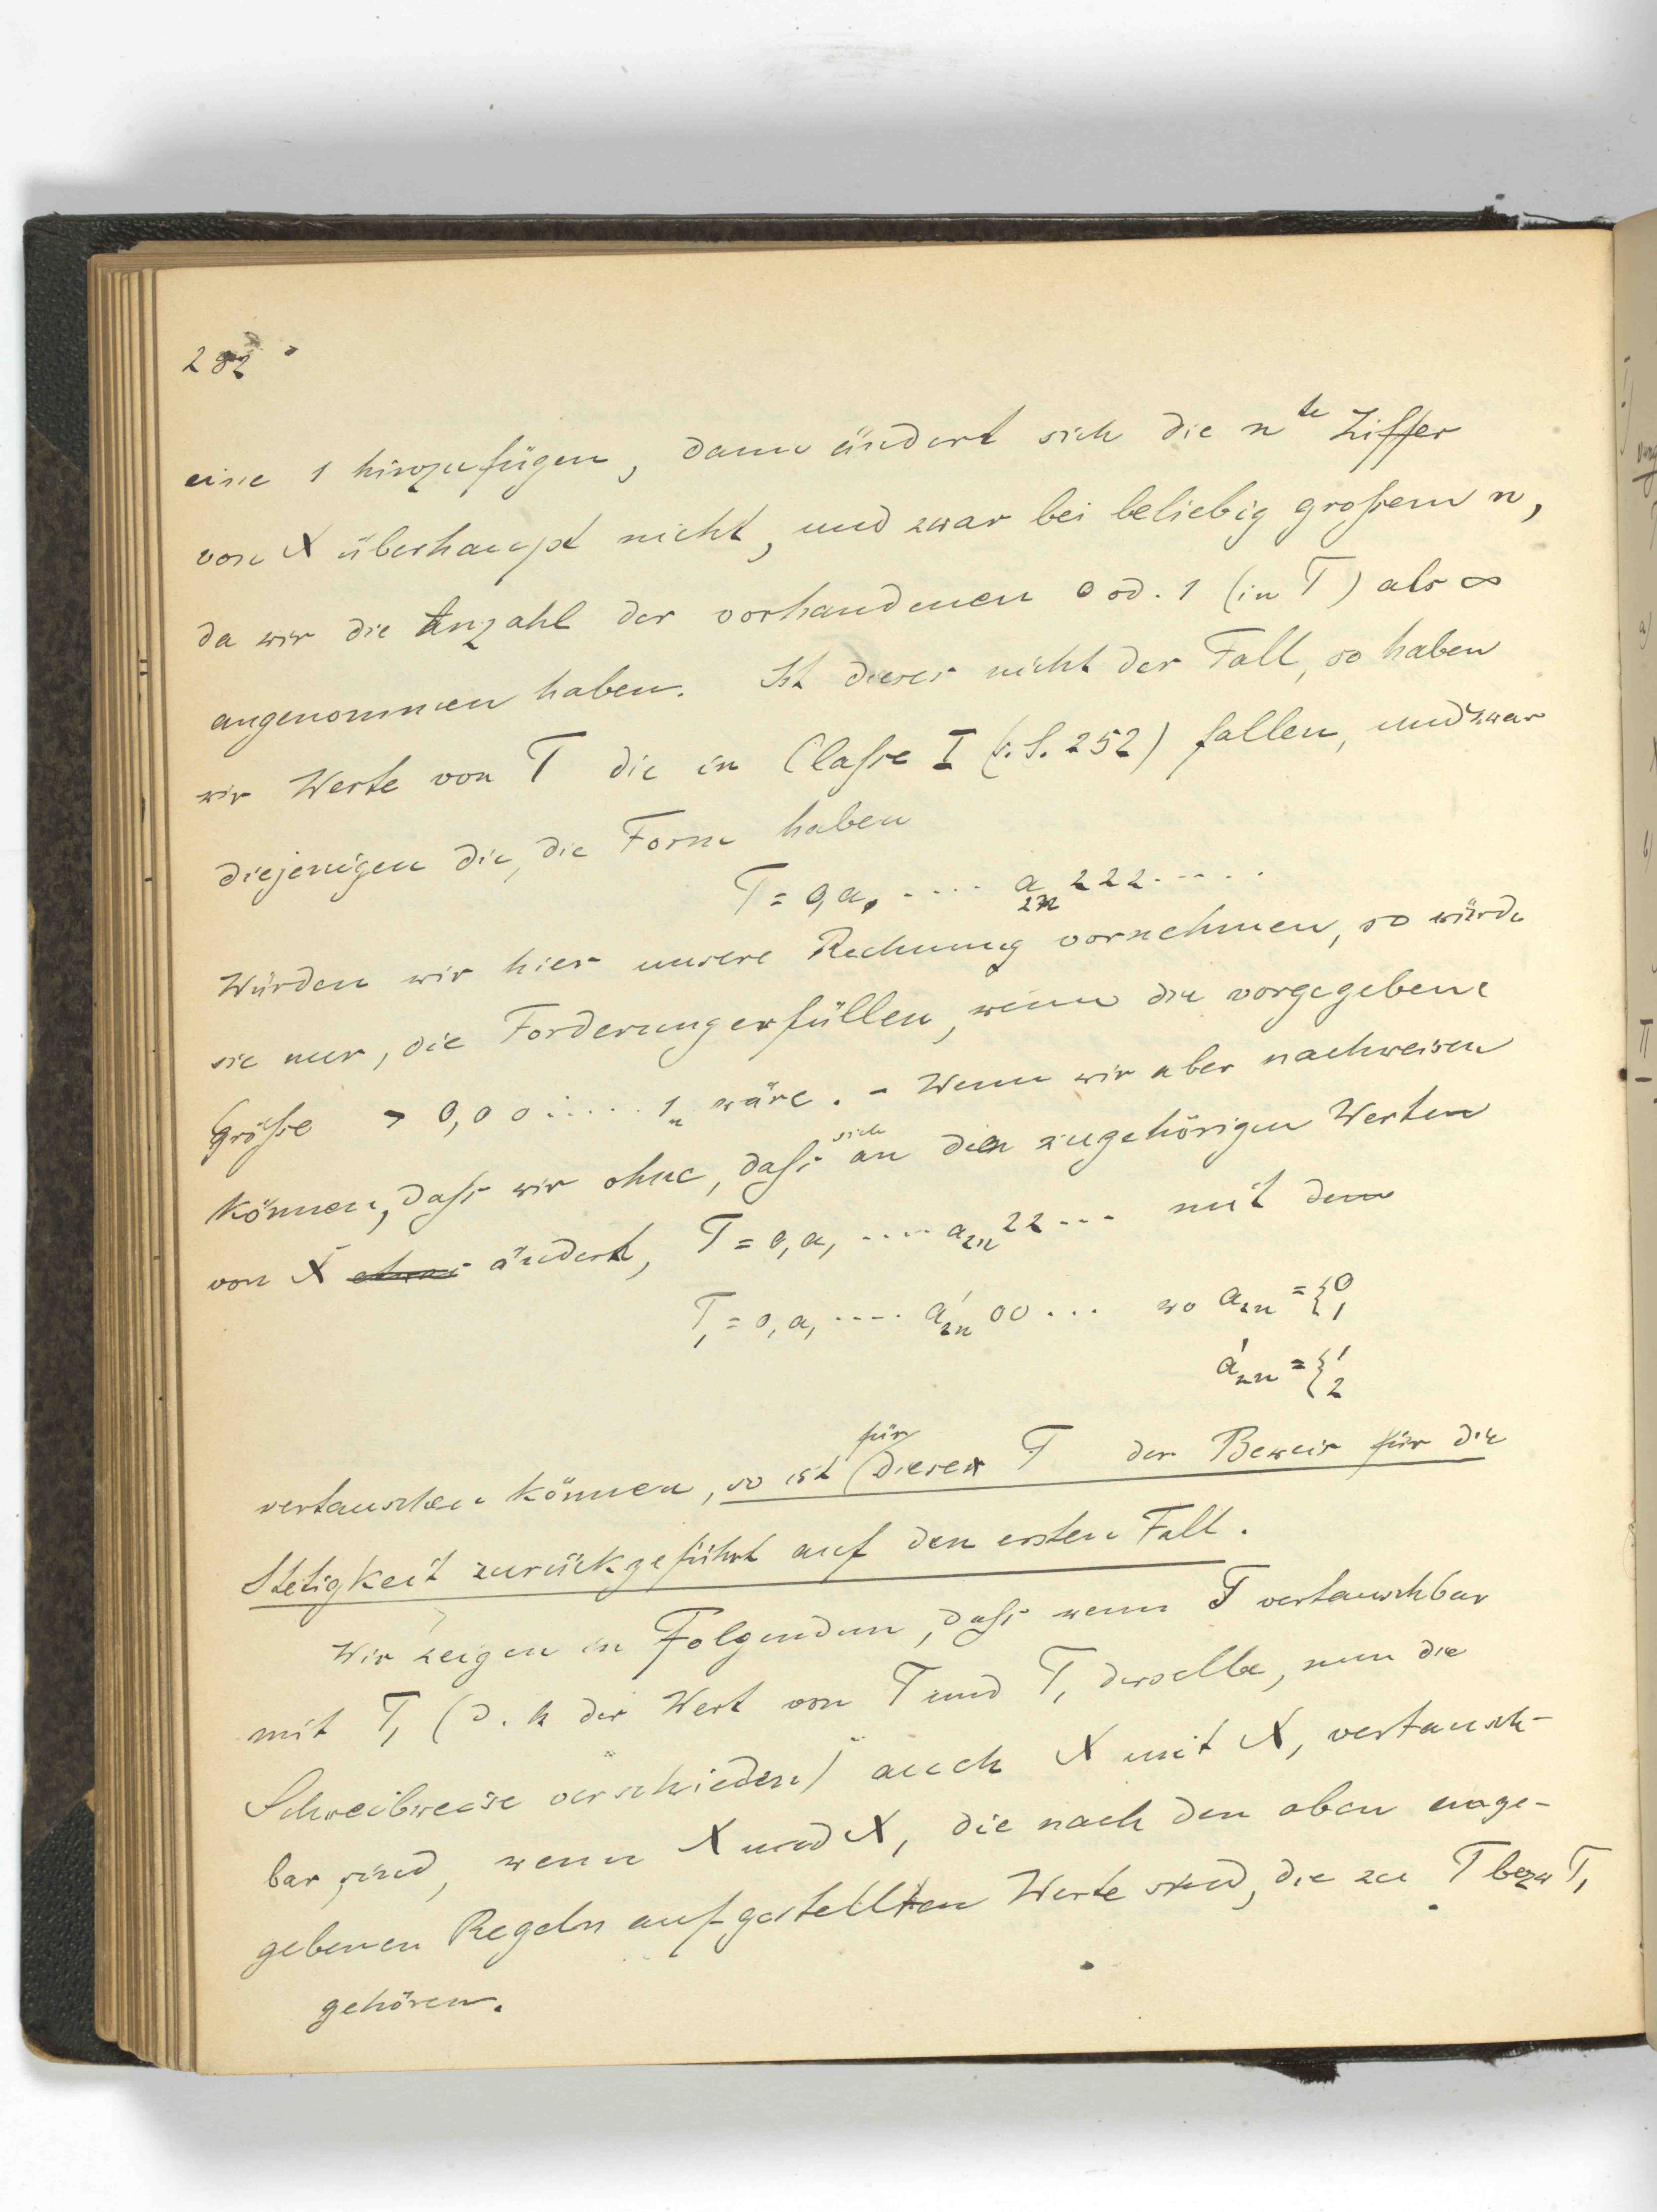 282
eine 1 hinzufügen, dann ändert sich die n^te Ziffer
von X überhaupt nicht, und zwar bei beliebig großem n,
da wir die Anzahl der vorhandenen 0 od. 1 (in T) als ∞
angenommen haben. Ist dieses nicht der Fall, so haben
wir Werte von T die in Classe I (s. S. 252) fallen, und zwar
diejenigen die, die Form haben
T = 0,a_1 .... a_2n 222.....
Würden wir hier unsere Rechnung vornehmen, so würde
sie nur, die Forderung erfüllen, wenn die vorgegebene
Größe > 0,00.....1_n wäre. - Wenn wir aber nachweisen
können, daß wir ohne, daß sich an den zugehörigen Werten
von X etwas ändert, T = 0,a_1 ....a_2n 22... mit dem
T_1 = 0,a_1 .... a'_2n 00... wo a_2n = {0 1
a'_2n = {1 2
vertauschen können, so ist für diesen T der Beweis für die
Stetigkeit zurückgeführt auf den ersten Fall.
Wir zeigen in Folgendem, daß wenn T vertauschbar
mit T_1 (d. h der Wert von T und T_1 derselbe, nur die
Schreibweise verschieden) auch X mit X_1 vertausch-
bar sind, wenn X und X_1 die nach den oben ange-
gebenen Regeln aufgestellten Werte sind, die zu T bezw T_1
gehören.